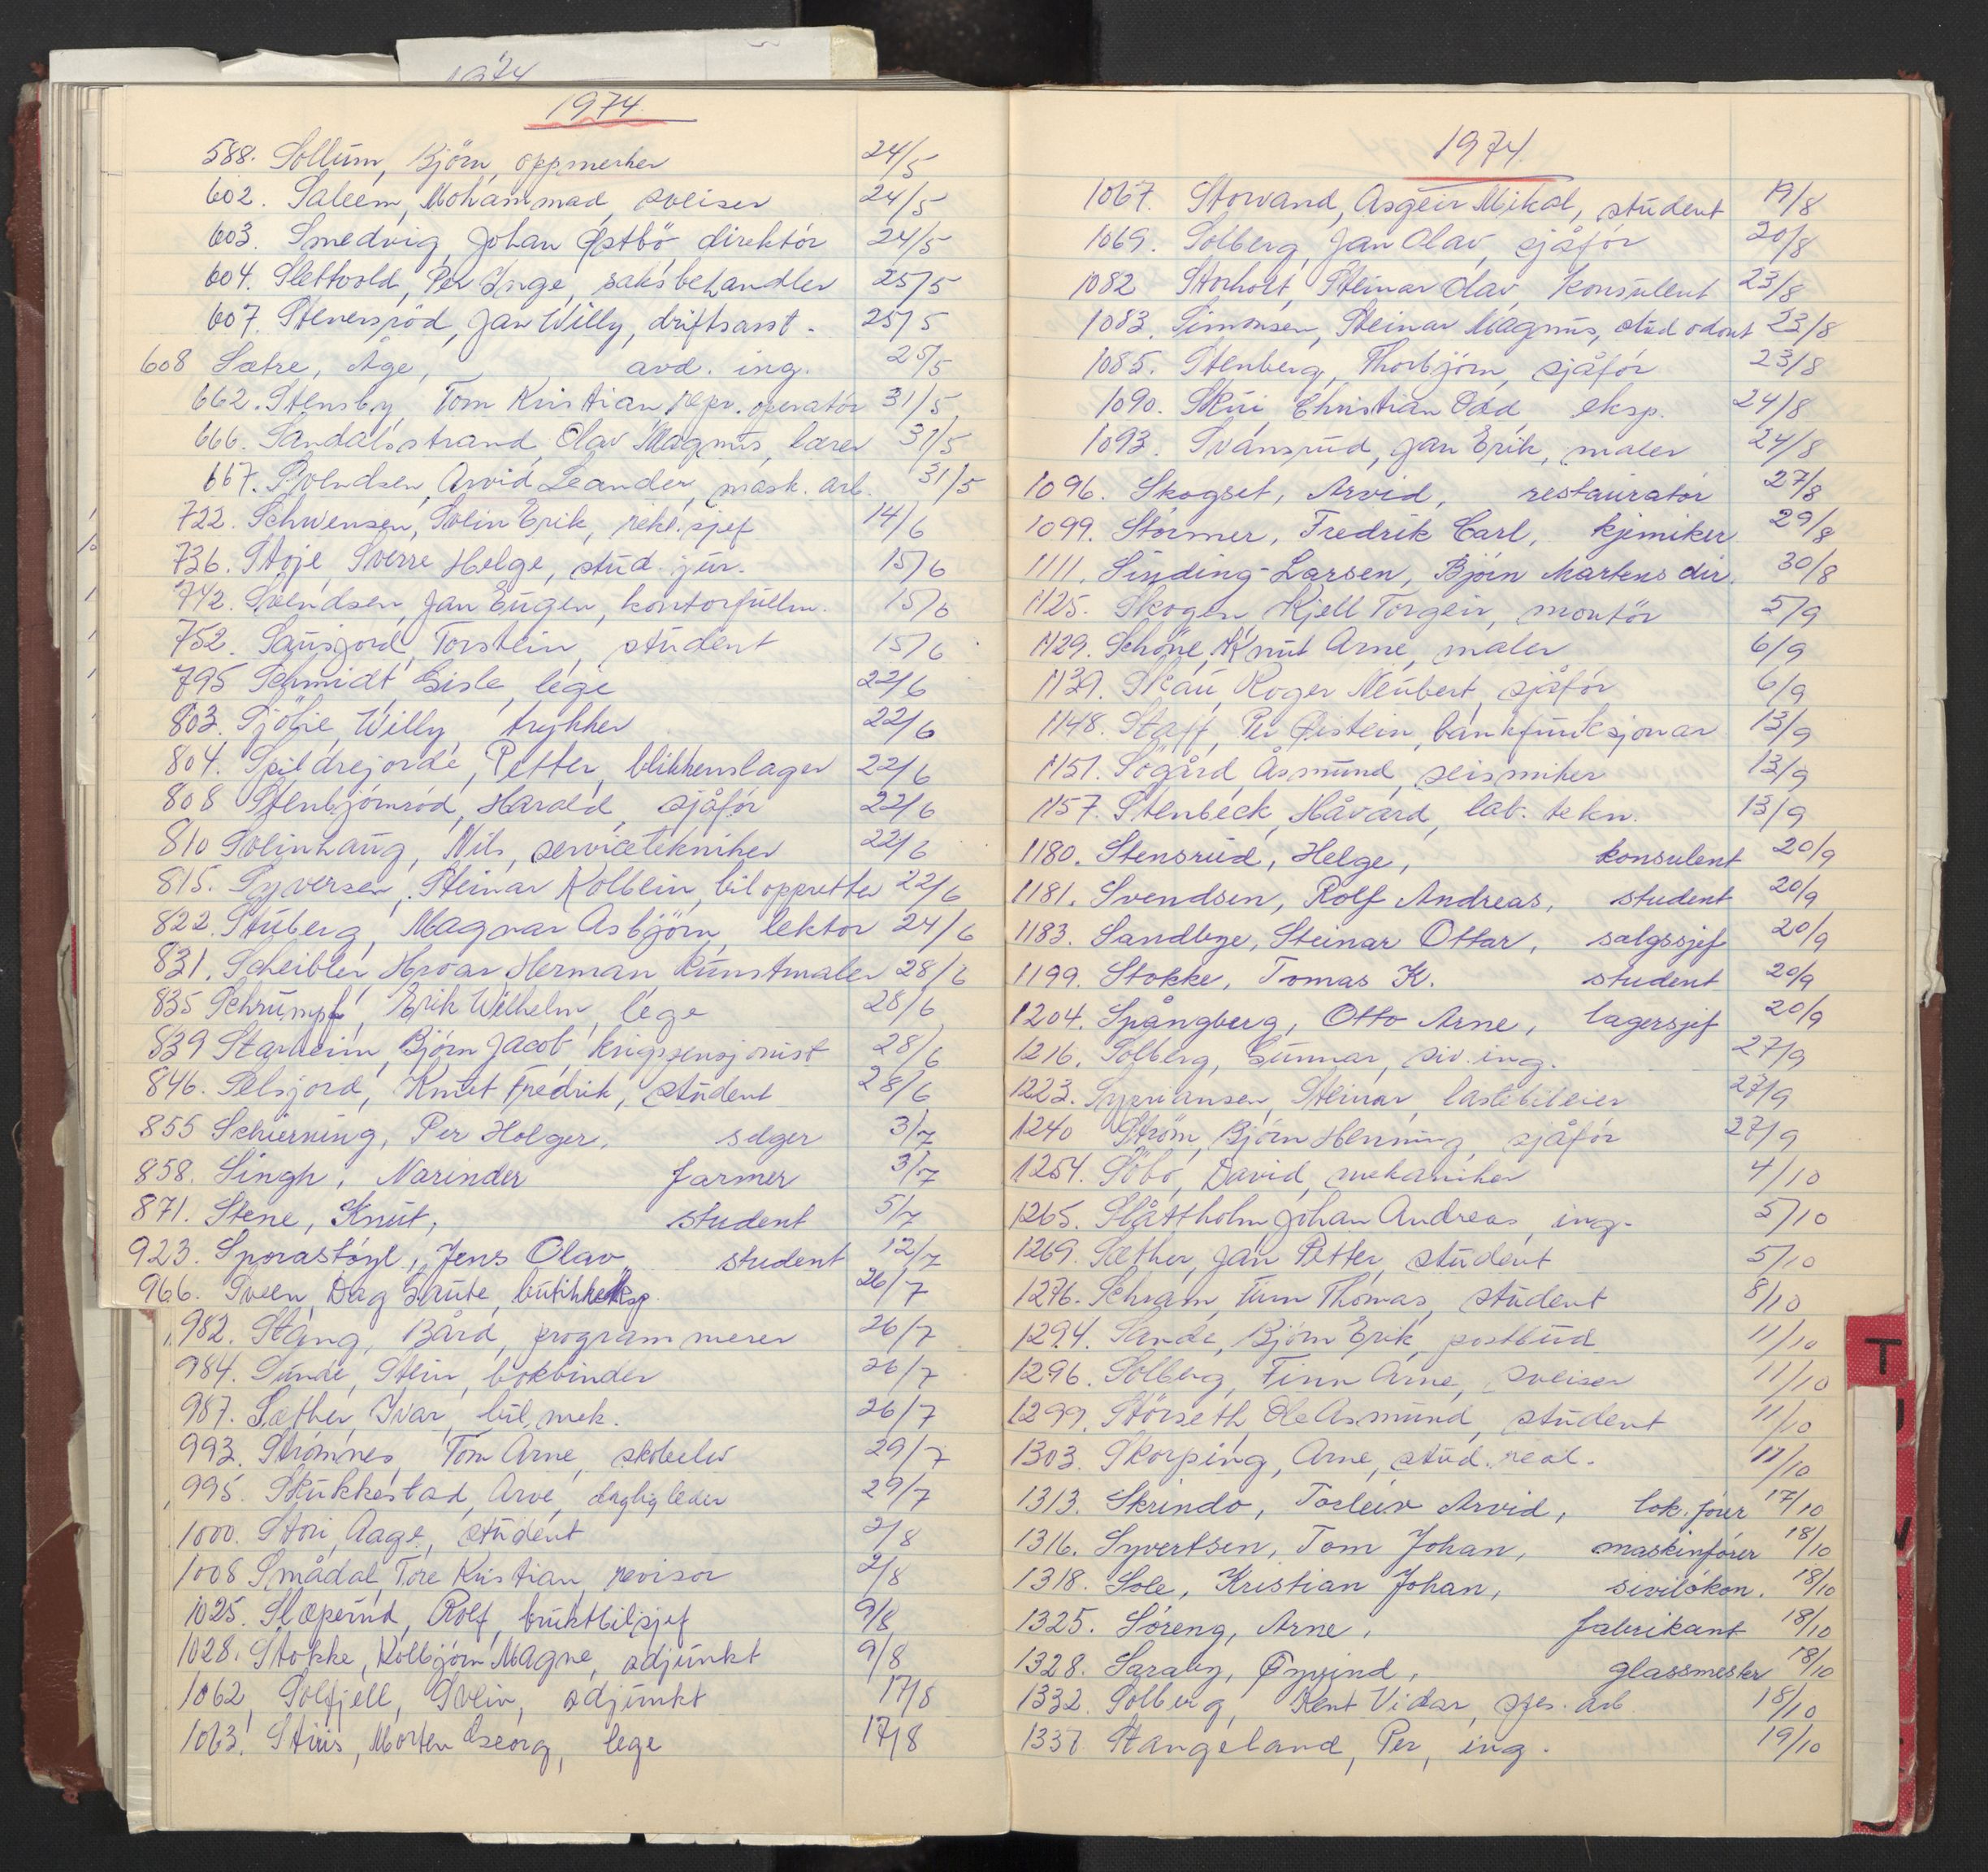 1974
1974.
588. Sollum, Björn, oppmerker 24/5
602. Saleem, Mohammad, sveiser 24/5
603. Smedvig, Johan Østbö, direktör 24/5
604. Slettvold, Per Inge, saksbehandler 25/5
607. Stenersröd, Jan Willy, driftsasst. 25/5
608 Sætre, Åge, avd. ing. 25/5
662. Stensby, Tom Kristian, repr. operatör 31/5
666. Sandalsstrand, Olav Magnus, lærer 31/5
667. Svendsen, Arvid Leander, mask. arb. 31/5
722. Schwensen, Svein Erik, rekl. sjef 14/6
736. Støje, Sverre Helge, stud. jur. 15/6
742. Svendsen, Jan Eugen, kontorfullm. 15/6
752. Sausjord, Torstein, student 15/6
795 Schmidt, Gisle, lege 22/6
803. Sjölie, Willy, trykker 22/6
804. Spildrejorde, Petter, blikkenslager 22/6
808 Stenbjörnröd, Harald, sjåför 22/6
810 Solinhaug, Nils, servicetekniker 22/6
815. Syversen, Steinar Kolbein, biloppretter 22/6
822. Stuberg, Magnar Asbjörn, lektor 24/6
831. Scheibler, Hroar Herman, kunstmaler 28/6
835 Schrumpf, Erik Wilhelm, lege 28/6
839 Starheim, Björn Jacob, krigspensjonist 28/6
846. Selsjord, Knut Fredrik, student 28/6
855 Schierning, Per Holger, selger 3/7
858. Singh, Narinder farmer 3/7
871. Stene, Knut, student 5/7
923. Sporastøyl, Jens Olav student 12/7
966. Sveen, Dag Gaute, butikkeksp. 26/7
982. Stang, Bård, programmerer 26/7
984. Sunde, Stein, bokbinder 26/7
987. Sæther, Ivar, bil. mek. 26/7
993. Strömnes, Tom Arne, skoleelev 29/7
995. Stukkestad, Arve, daglig leder 29/7
1000. Stori, Aage, student 2/8
1008 Smådal, Tore Kristian, revisor 2/8
1025. Slæperud, Rolf, bruktbilsjef 9/8
1028. Stokke, Kolbjörn Magne, adjunkt 9/8
1062, Solfjell, Svein, adjunkt 17/8
1063. Stiris, Morten Georg, lege 17/8
1974
1067. Storvand, Asgeir Mikal, student 19/8
1069. Solberg, Jan Olav, sjåför 20/8
1082 Storholt, Steinar Olav, konsulent 23/8
1083. Simonsen, Steinar Magnus, stud odont 23/8
1085. Stenberg, Thorbjörn, sjåför 23/8
1090. Skui, Christian Odd eksp. 24/8
1093. Svansrud, Jan Erik, maler 24/8
1096. Skogset, Arvid, restauratör 27/8
1099. Störmer, Fredrik Carl, kjemiker 29/8
1111. Sinding-Larsen, Björn Martens dir. 30/8
1125. Skogen, Kjell Torgeir, montör 5/9
1129. Schöne, Knut Arne, maler 6/9
1139. Skau, Roger Neubert, sjåför 6/9
1148. Staff, Per Øistein, bankfunksjonær 13/9
1151. Sögård, Åsmund, seismiker 13/9
1157. Stenbeck, Håvard, lab. tekn. 13/9
1180. Stensrud, Helge, konsulent 20/9
1181. Svendsen, Rolf Andreas, student 20/9
1183. Sandbye, Steinar Ottar, salgssjef 20/9
1199. Stokke, Tomas K. student 20/9
1204. Spångberg, Otto Arne, lagersjef 20/9
1216. Solberg, Gunnar, siv. ing. 27/9
1223. Sypriansen, Steinar, lastebileier 27/9
1240 Ström, Björn Henning, sjåför 27/9
1254. Söbö, David, mekaniker 4/10
1265. Slåttholm, Johan Andreas, ing. 5/10
1269. Sæther, Jan Petter, student 5/10
1276. Schram, Finn Thomas, student 8/10
1294. Sande, Björn Erik, postbud 11/10
1296. Solberg, Finn Arne, sveiser 11/10
1299. Störseth, Ole Asmund, student 11/10
1303. Skorping, Arne, stud. real. 11/10
1313. Skrindo, Torleiv Arvid, lok. förer 17/10
1316. Syvertsen, Tom Johan, maskinförer 18/10
1318. Sole, Kristian Johan, sivilökon. 18/10
1325. Söreng, Arne, fabrikant 18/10
1328. Saraby, Øyvind, glassmester 18/10
1332 Solberg, Kent Vidar, spes. arb 18/10
1337 Stangeland, Per, ing. 19/10
T